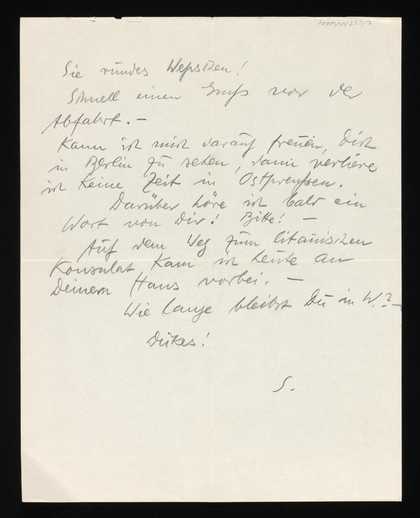 Sie rundes
Schnell einen Gruß vor der
Abfahrt. –
Kann ich mich darauf freuen, Dich
in Berlin zu sehen, dann verliere
ich keine Zeit in Ostpreußen.
Darüber höre ich bald ein
Wort von Dir! Bitte! –
Auf dem Weg zum litauischen
Konsulat kam ich heute an
Deinem Haus vorbei. –
Wie lange bleibst Du in W.? –
S.